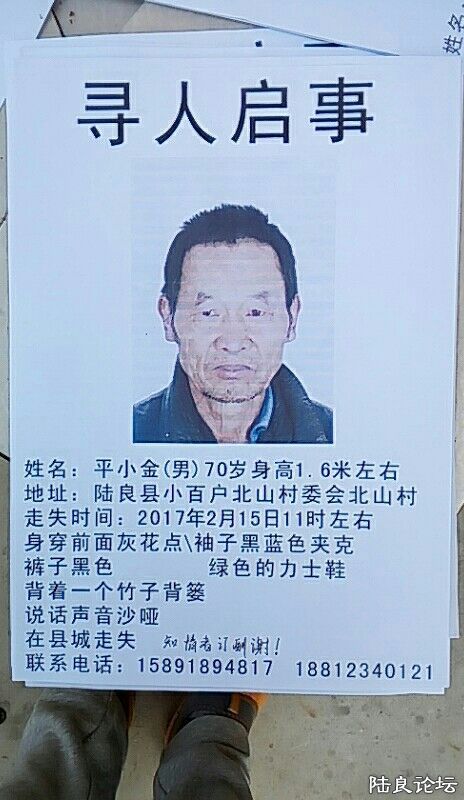 姓名
寻人启事
姓名：平小金(男)70岁身高1.6米左右
地址：陆良县小百户北山村委会北山村
走失时间：2017年2月15日11时左右
身穿前面灰花点\袖子黑蓝色夹克
裤子黑色 绿色的力士鞋
背着一个竹子背篓
说话声音沙哑
在县城走失 知情者订酬谢！
联系电话：15891894817 18812340121
陆良论坛